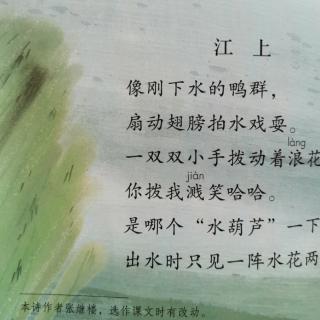 江 上
像刚下水的鸭群，
扇动翅膀拍水戏耍。
làng
一双双小手拨动着浪花
jiàn
你拨我溅笑哈哈。
是哪个“水葫芦”一下
出水时只见一阵水花两
本诗作者张继楼，选作课文时有改动。